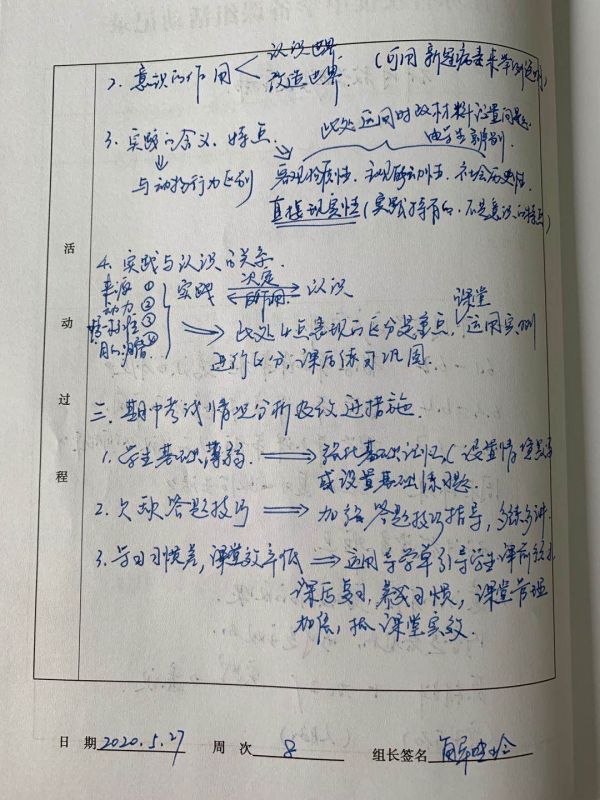 2. 意识的作用 < 认识世界 改造世界 (可用新冠病毒来举例说明)
此处运用时政材料设置问题,
由学生辨别
3. 实践的含义、特点
与动物行为区别 客观物质性、主观能动性、社会历史性、
直接现实性(实践特有的,不是意识的特点)
4. 实践与认识的关系
来源① 实践 决定 认识
动力② 反作用
检验标准③ 此处4点表现的区分是重点,课堂运用实例
目的、归宿④ 进行区分,课后练习巩固
三、期中考试情况分析及改进措施
1. 学生基础薄弱 ⇒ 强化基础识记(设置情境教学
或设置基础练习题
2. 欠缺答题技巧 ⇒ 加强答题技巧指导,多练多讲
3. 学习习惯差,课堂效率低 ⇒ 运用导学单引导学生课前预习
课后复习,养成习惯,课堂管理
加强,抓课堂实效.
活动过程
日 期 2020.5.27 周 次 8 组长签名